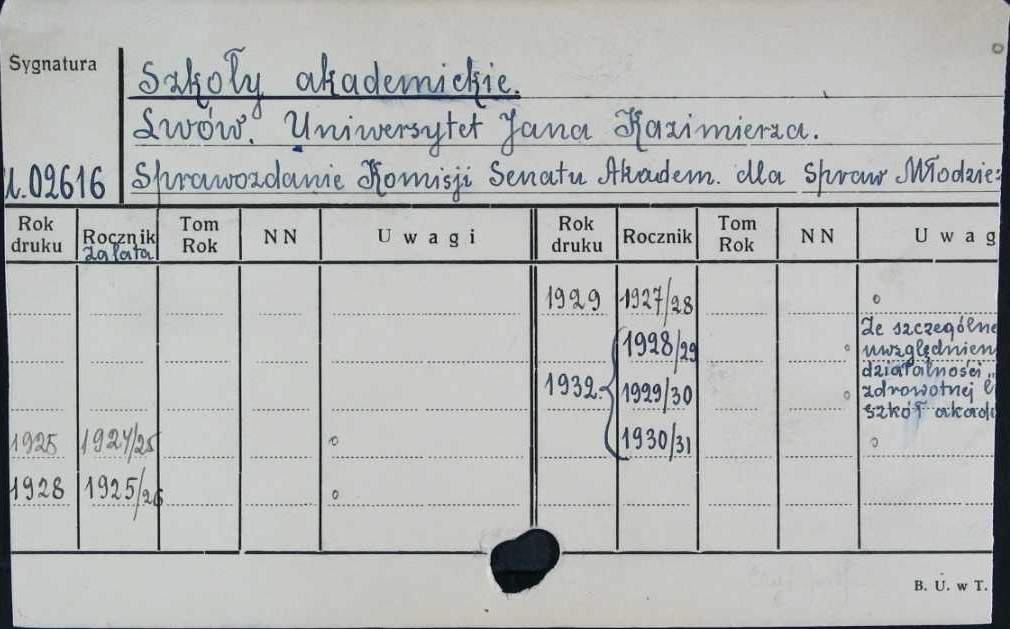 Sygnatura
Szkoły akademickie.
Lwów. Uniwersytet Jana Kazimierza.
02616 Sprawozdanie Komisji Senatu Akadem. dla Spraw Młodzież
Rok druku Rocznik za lata Tom Rok NN Uwagi Rok druku Rocznik Tom Rok NN Uwag
1929 1927/28
1928/29
Ze szczególne
uwzględnien
działalności
1932. 1929/30
zdrowotnej
szkół akade
1925 1924/25 1930/31
1928 1925/26
B. U. w T.